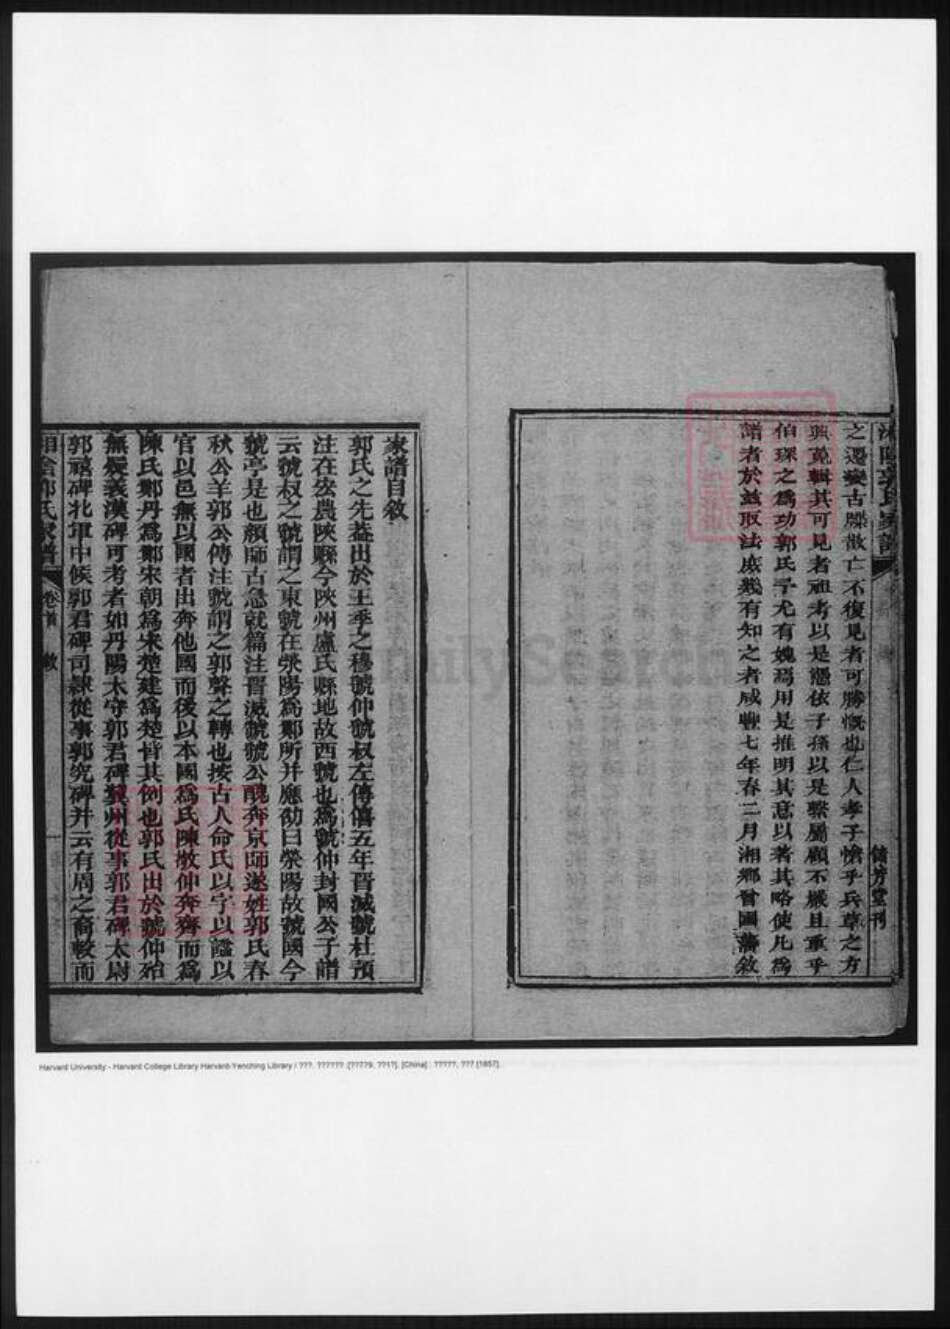 湘陰郭氏家譜
儲芳堂刊
之遷變古牒散亡不復見者可勝慨也仁人孝子愴乎兵革之方
興蒐輯其可見者祖考以是憑依子孫以是繫屬顧不嚴且重乎
伯琛之為功郭氏予尤有媿焉用是推明其意以著其略使凡為
譜者於茲取法庶幾有知之者咸豐七年春二月湘鄉曾國藩敘
家譜自敘
郭氏之先葢出於王季之穆虢仲虢叔左傳僖五年晋滅虢杜預
注在宏農陝縣今陝州盧氏縣地故西虢也為虢仲封國公子譜
云虢叔之虢謂之東虢在滎陽為鄭所并應劭曰滎陽故虢國今
虢亭是也顏師古急就篇注晋滅虢虢公醜奔京師遂姓郭氏春
秋公羊郭公傳注虢謂之郭聲之轉也按古人命氏以字以諡以
官以邑無以國者出奔他國而後以本國為氏陳敬仲奔齊而為
陳氏鄭丹為鄭宋朝為宋楚建為楚皆其例也郭氏出於虢仲殆
無疑義漢碑可考者如丹陽太守郭君碑冀州從事郭君碑太尉
郭禧碑北軍中候郭君碑司隸從事郭究碑并云有周之裔較而
湘陰郭氏家譜
卷首
敘
一
Harvard University - Harvard College Library Harvard-Yenching Library / ???. ?????? :[????9, ??1?]. [China] : ?????, ??? [1857].
FamilySearch